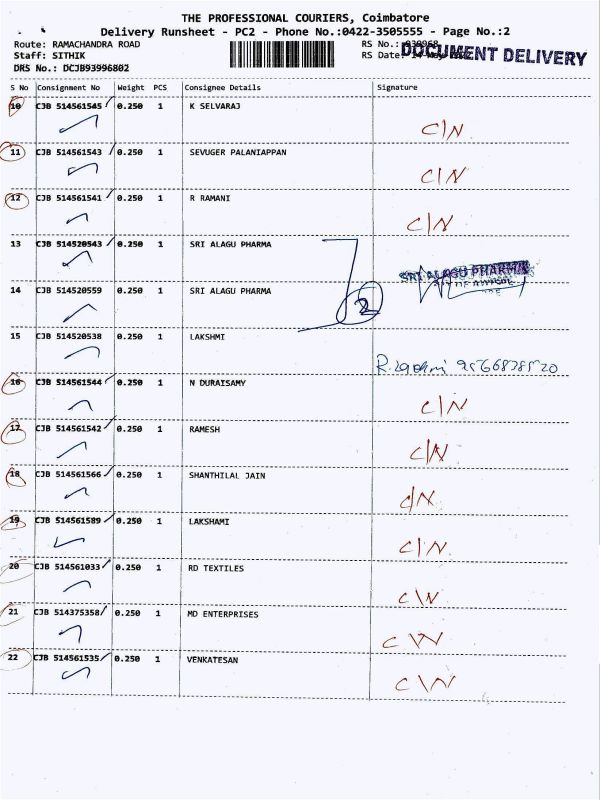 THE PROFESSIONAL COURIERS, Coimbatore
Delivery Runsheet - PC2 - Phone No.:0422-3505555 - Page No.:2
Route: RAMACHANDRA ROAD RS No.:
DOCUMENT DELIVERY
Staff: SITHIK RS Date:
DRS No.: DCJB93996802
S No Consignment No Weight PCS Consignee Details Signature
10 CJB 514561545 0.250 1 K SELVARAJ
C/N
11 CJB 514561543 0.250 1 SEVUGER PALANIAPPAN
C/N
12 CJB 514561541 0.250 1 R RAMANI
C/N
13 CJB 514520543 0.250 1 SRI ALAGU PHARMA
SRI ALAGU PHARMA
14 CJB 514520559 0.250 1 SRI ALAGU PHARMA
2
15 CJB 514520538 0.250 1 LAKSHMI
16 CJB 514561544 0.250 1 N DURAISAMY
C/N
17 CJB 514561542 0.250 1 RAMESH
C/N
18 CJB 514561566 0.250 1 SHANTHILAL JAIN
C/N
19 CJB 514561589 0.250 1 LAKSHAMI
C/N
20 CJB 514561033 0.250 1 RD TEXTILES
C\N
21 CJB 514375358 0.250 1 MD ENTERPRISES
C\N
22 CJB 514561535 0.250 1 VENKATESAN
C\N